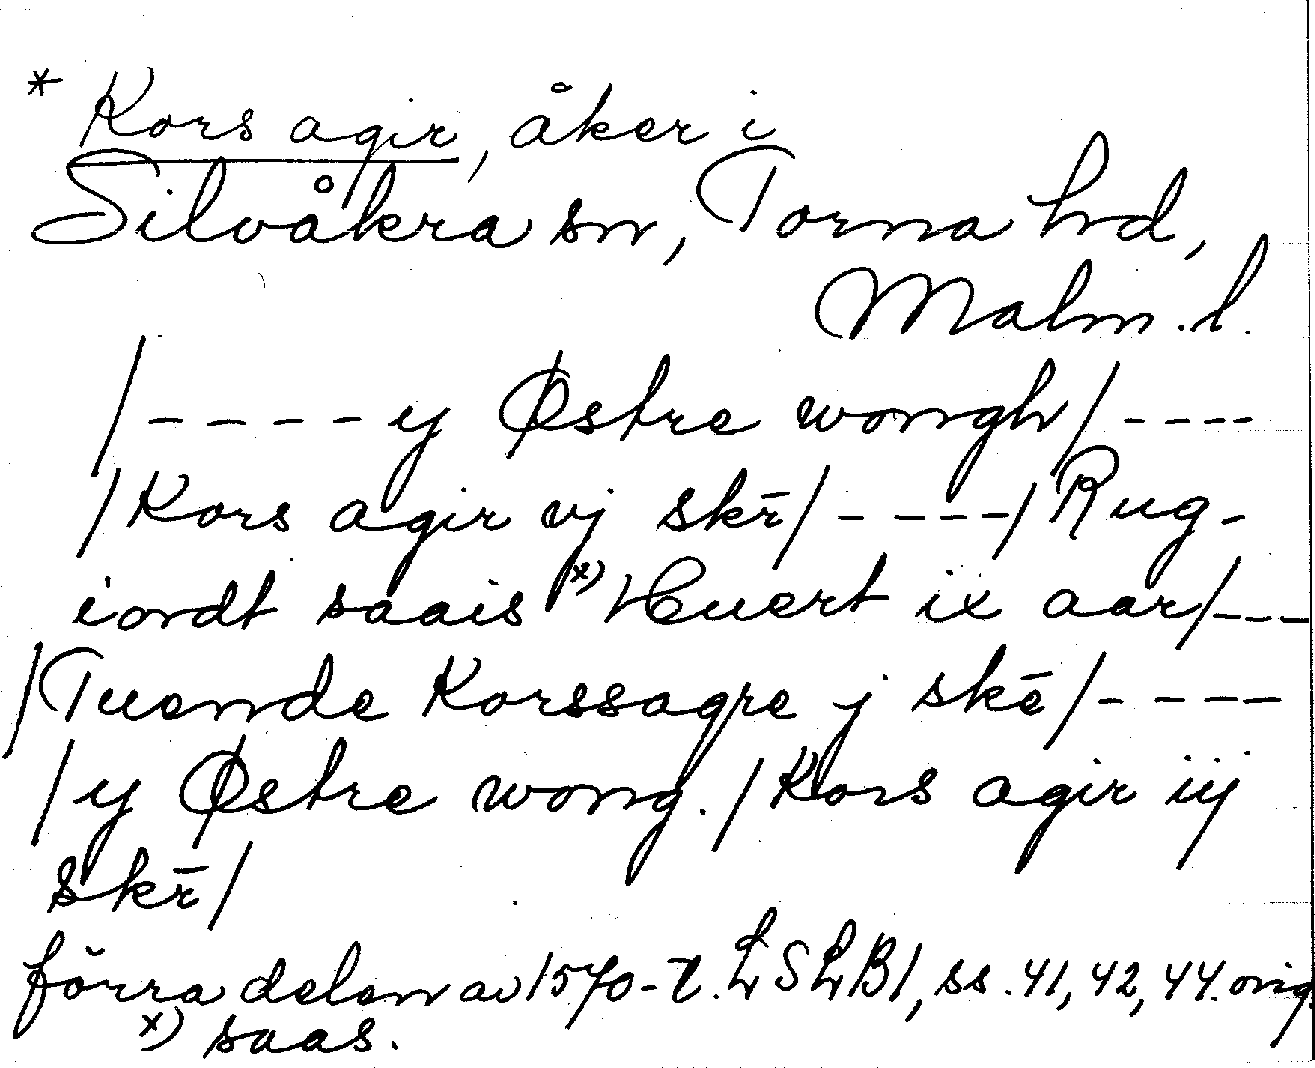 * Kors agir, åker i
Silvåkra sn, Torna hd,
Malm. l.
/ - - - - y Østre wongh / - - - -
/ Kors agir vj skr̄ / - - - - / Rug-
iordt saais x) Huert ix aar / - - -
/ Tuende Korssagre j skē / - - - -
/ y Østre wong. / Kors agir iij
skr̄ /
förra delen av 1570-t. LSLB1, ss. 41, 42, 44. orig.
x) saas.